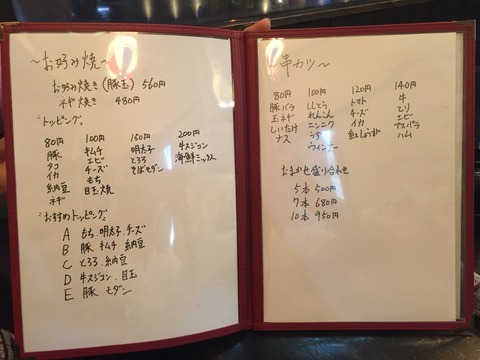 ～お好み焼～
お好み焼き(豚玉) 560円
ネギ焼き 480円
トッピング
80円 100円 150円 200円
豚 キムチ 明太子 牛スジコン
タコ エビ とろろ 海鮮ミックス
イカ チーズ そばモダン
納豆 もち
ネギ 目玉焼
おすすめトッピング
A もち.明太子.チーズ
B 豚 キムチ 納豆
C とろろ.納豆
D 牛スジコン.目玉
E 豚 モダン
～串カツ～
80円 100円 120円 140円
豚バラ ししとう トマト 牛
玉ネギ れんこん チーズ とり
しいたけ ニンニク イカ エビ
ナス うずら 紅しょうが アスパラ
ウィンナー ハム
おまかせ盛り合わせ
5本 500円
7本 680円
10本 950円